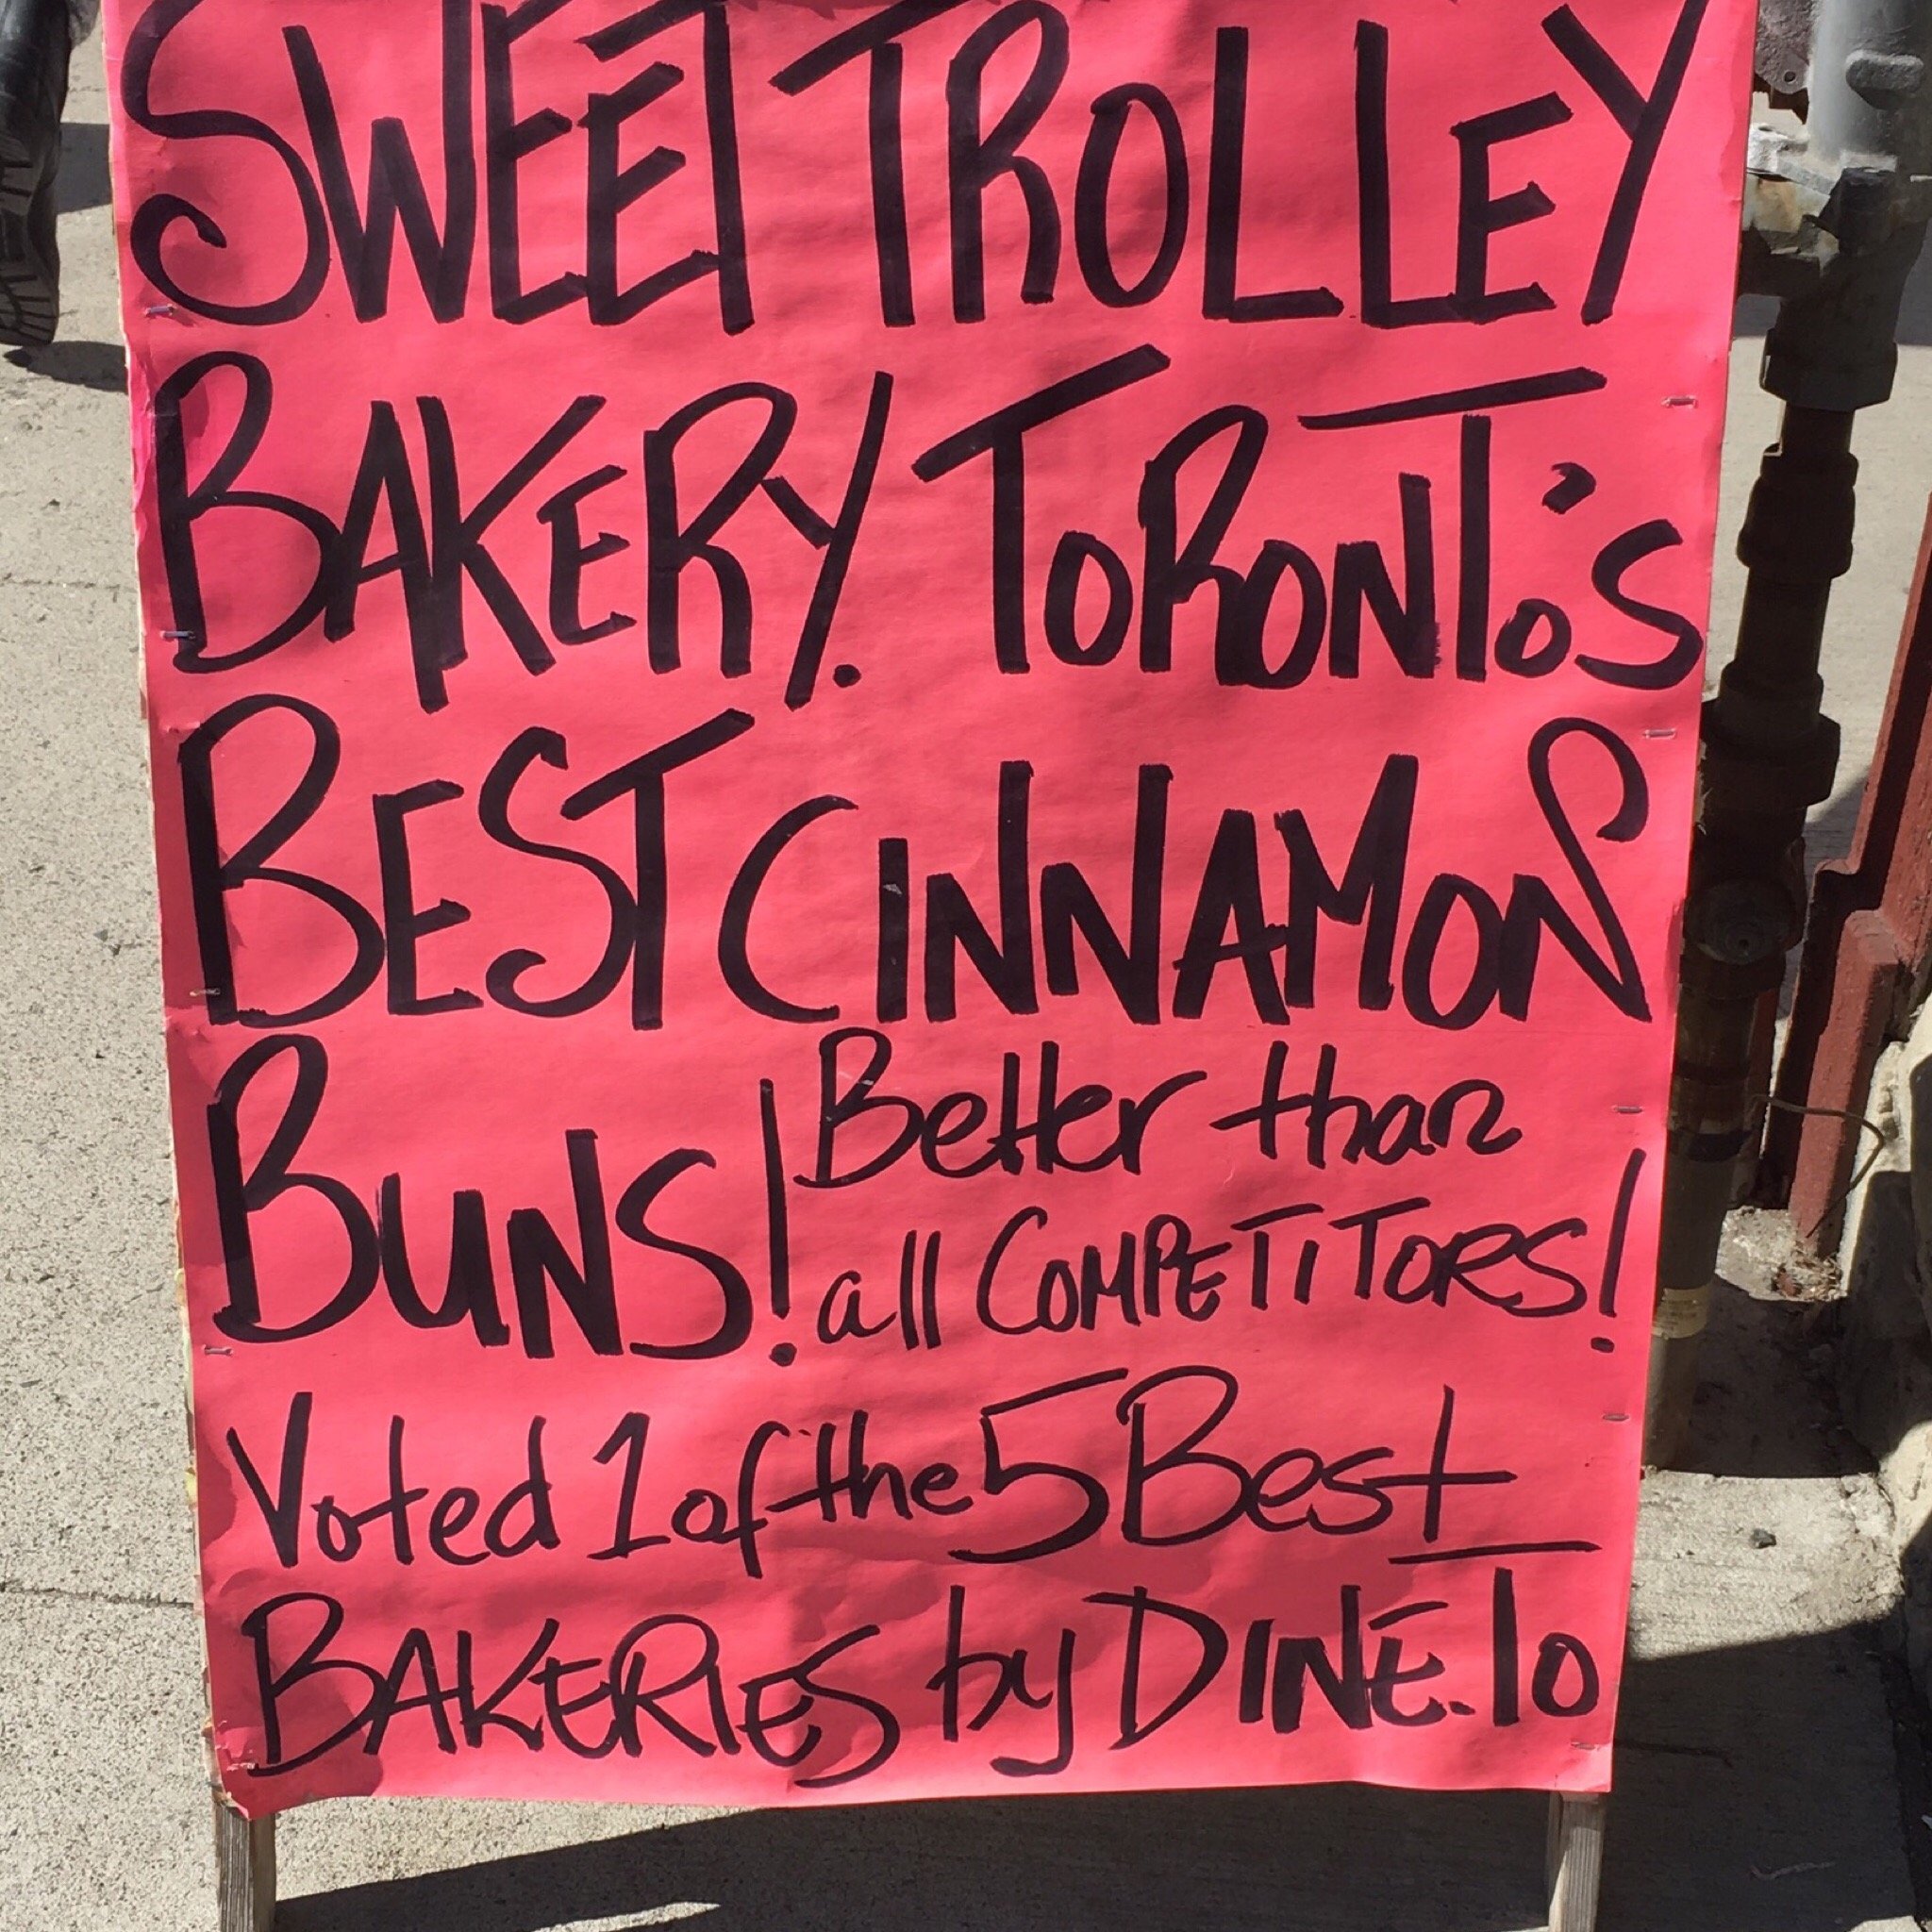 SWEET TROLLEY
BAKERY. TORONTO'S
BEST CINNAMON
BUNS! Better than
all COMPETITORS!
Voted 1 of the 5 Best
BAKERIES by DINE.TO